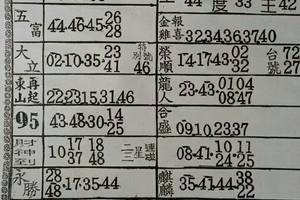 44 度 33 主 42
五富 44·46·45 26 28
金報雞喜 32,34,36,37,40
大立 02·10·35 23 41 特別號 46
榮順 14·17·43 02 32 台號 72 27
東山再起 22,23,15,31,46
龍人 23·43 01 04 08 47
95 43·48·30 14 25
合盛 09,10,23,37
財神到 10 17 18 37 48 二三星 連碰
08·41 10 11 24 25
永勝 28 48·17·35·44
麒麟 35·41·44 38 22